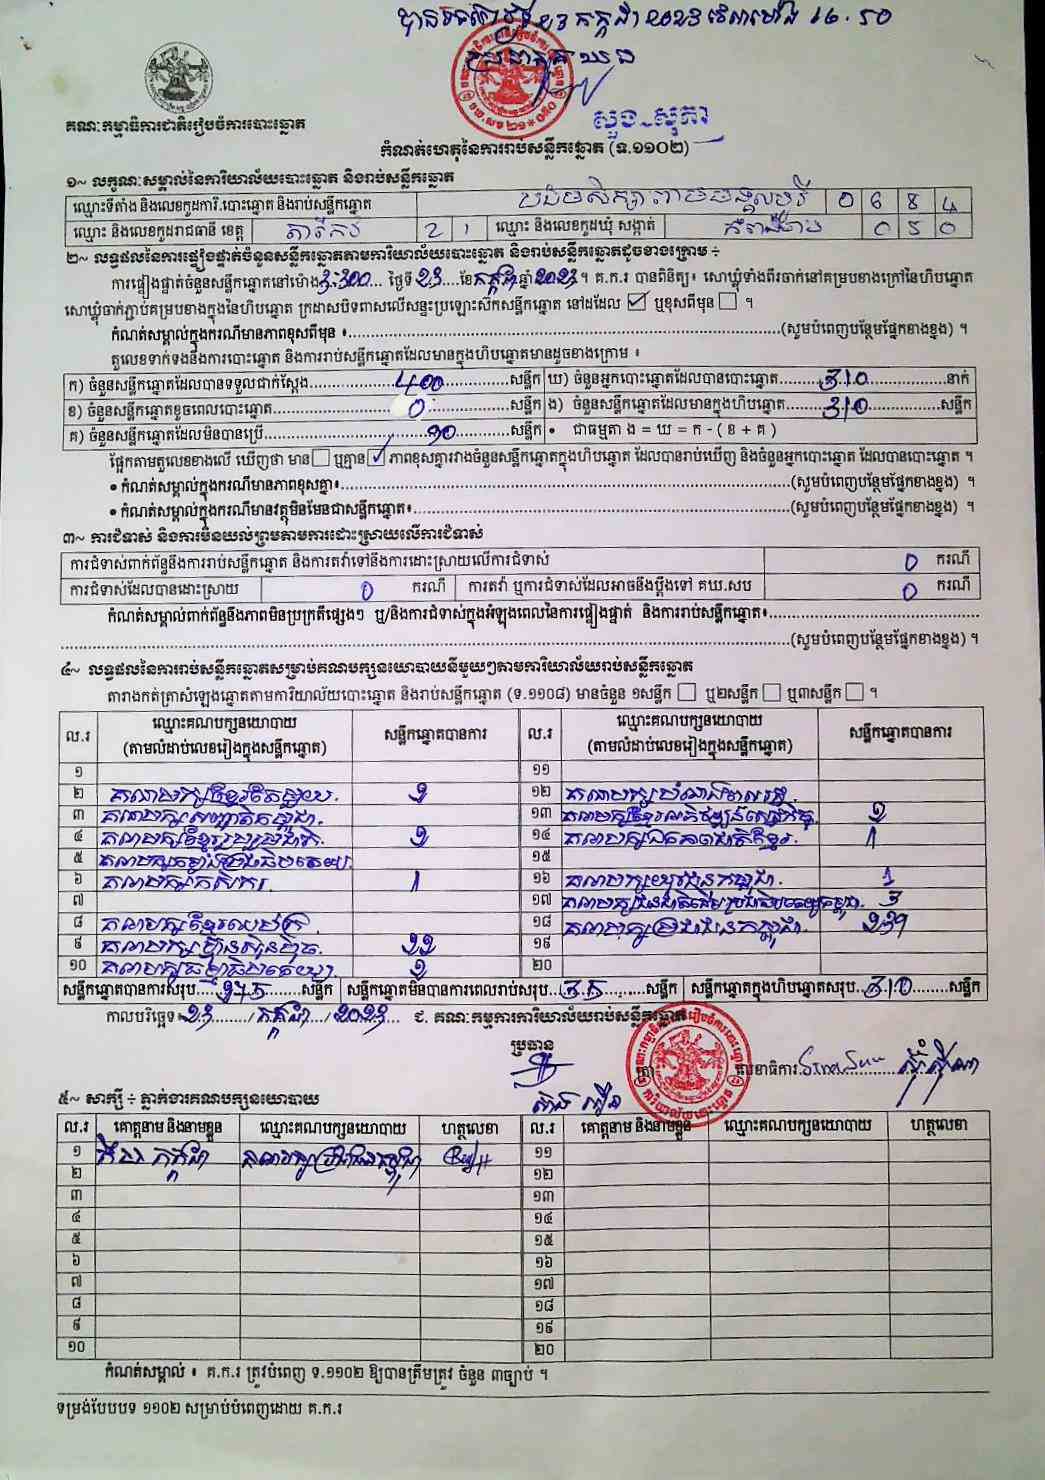 ២៣ កក្កដា 2023 16.50
សួង សុភា
គណៈកម្មាធិការជាតិរៀបចំការបោះឆ្នោត
កំណត់ហេតុនៃការរាប់សន្លឹកឆ្នោត (ទ.១១០២)
១~ លក្ខណៈសម្គាល់នៃការិយាល័យបោះឆ្នោត និងរាប់សន្លឹកឆ្នោត
ឈ្មោះទីតាំង និងលេខកូដការិ.បោះឆ្នោត និងរាប់សន្លឹកឆ្នោត 0 6 8 4
ឈ្មោះ និងលេខកូដរាជធានី ខេត្ត តាកែវ 2 1 ឈ្មោះ និងលេខកូដឃុំ សង្កាត់ 0 5 0
២~ លទ្ធផលនៃការផ្ទៀងផ្ទាត់ចំនួនសន្លឹកឆ្នោតតាមការិយាល័យបោះឆ្នោត និងរាប់សន្លឹកឆ្នោតដូចខាងក្រោម ÷
ការផ្ទៀងផ្ទាត់ចំនួនសន្លឹកឆ្នោតនៅម៉ោង 3:300 ថ្ងៃទី 23 ខែ កក្កដា ឆ្នាំ 2023 ។ គ.ក.រ បានពិនិត្យ៖ សោឃ្លុំទាំងពីរចាក់នៅគម្របខាងក្រៅនៃហិបឆ្នោត
សោឃ្លុំចាក់ភ្ជាប់គម្របខាងក្នុងនៃហិបឆ្នោត ក្រដាសបិទពាសលើសន្ទះប្រឡោះស៊កសន្លឹកឆ្នោត នៅដដែល ☑ ឬខុសពីមុន ☐ ។
កំណត់សម្គាល់ក្នុងករណីមានភាពខុសពីមុន ៖ (សូមបំពេញបន្ថែមផ្នែកខាងខ្នង) ។
តួលេខទាក់ទងនឹងការបោះឆ្នោត និងការរាប់សន្លឹកឆ្នោតដែលមានក្នុងហិបឆ្នោតមានដូចខាងក្រោម ៖
ក) ចំនួនសន្លឹកឆ្នោតដែលបានទទួលជាក់ស្តែង 400 សន្លឹក ឃ) ចំនួនអ្នកបោះឆ្នោតដែលបានបោះឆ្នោត 310 នាក់
ខ) ចំនួនសន្លឹកឆ្នោតខូចពេលបោះឆ្នោត 0 សន្លឹក ង) ចំនួនសន្លឹកឆ្នោតដែលមានក្នុងហិបឆ្នោត 310 សន្លឹក
គ) ចំនួនសន្លឹកឆ្នោតដែលមិនបានប្រើ 90 សន្លឹក • ជាធម្មតា ង = ឃ = ក - ( ខ + គ )
ផ្អែកតាមតួលេខខាងលើ ឃើញថា មាន ☐ ឬគ្មាន ☑ ភាពខុសគ្នារវាងចំនួនសន្លឹកឆ្នោតក្នុងហិបឆ្នោត ដែលបានរាប់ឃើញ និងចំនួនអ្នកបោះឆ្នោត ដែលបានបោះឆ្នោត ។
• កំណត់សម្គាល់ក្នុងករណីមានភាពខុសគ្នា៖ (សូមបំពេញបន្ថែមផ្នែកខាងខ្នង) ។
• កំណត់សម្គាល់ក្នុងករណីមានវត្ថុមិនមែនជាសន្លឹកឆ្នោត៖ (សូមបំពេញបន្ថែមផ្នែកខាងខ្នង) ។
៣~ ការជំទាស់ និងការមិនយល់ព្រមតាមការដោះស្រាយលើការជំទាស់
ការជំទាស់ពាក់ព័ន្ធនឹងការរាប់សន្លឹកឆ្នោត និងការតវ៉ាទៅនឹងការដោះស្រាយលើការជំទាស់ 0 ករណី
ការជំទាស់ដែលបានដោះស្រាយ 0 ករណី ការតវ៉ា ឬការជំទាស់ដែលអាចនឹងប្តឹងទៅ គឃ.សប 0 ករណី
កំណត់សម្គាល់ពាក់ព័ន្ធនឹងភាពមិនប្រក្រតីផ្សេងៗ ឬ/និងការជំទាស់ក្នុងអំឡុងពេលនៃការផ្ទៀងផ្ទាត់ និងការរាប់សន្លឹកឆ្នោត៖
(សូមបំពេញបន្ថែមផ្នែកខាងខ្នង) ។
៤~ លទ្ធផលនៃការរាប់សន្លឹកឆ្នោតសម្រាប់គណបក្សនយោបាយនីមួយៗតាមការិយាល័យរាប់សន្លឹកឆ្នោត
តារាងកត់ត្រាសំឡេងឆ្នោតតាមការិយាល័យបោះឆ្នោត និងរាប់សន្លឹកឆ្នោត (ទ.១១០៨) មានចំនួន ១សន្លឹក ☐ ឬ២សន្លឹក ☐ ឬ៣សន្លឹក ☐ ។
ល.រ ឈ្មោះគណបក្សនយោបាយ (តាមលំដាប់លេខរៀងក្នុងសន្លឹកឆ្នោត) សន្លឹកឆ្នោតបានការ ល.រ ឈ្មោះគណបក្សនយោបាយ (តាមលំដាប់លេខរៀងក្នុងសន្លឹកឆ្នោត) សន្លឹកឆ្នោតបានការ
១ ១១
២ គណបក្សខ្មែរតែមួយ ១២
៣ គណបក្សសញ្ជាតិកម្ពុជា ១៣
៤ គណបក្សខ្មែររួបរួមជាតិ ១៤ គណបក្សឯកភាពជាតិខ្មែរ 1
៥ ១៥
៦ គណបក្សកសិករ 1 ១៦ គណបក្សយុវជនកម្ពុជា 1
៧ ១៧ 3
៨ គណបក្សខ្មែរឈប់ក្រ ១៨ គណបក្សប្រជាជនកម្ពុជា
៩ គណបក្សហ៊្វុនស៊ិនប៉ិច ១៩
១០ គណបក្សធម្មាធិបតេយ្យ ២០
សន្លឹកឆ្នោតបានការសរុប 275 សន្លឹក សន្លឹកឆ្នោតមិនបានការពេលរាប់សរុប 35 សន្លឹក សន្លឹកឆ្នោតក្នុងហិបឆ្នោតសរុប 310 សន្លឹក
កាលបរិច្ឆេទ៖ 23 / កក្កដា / 2023 ជ. គណៈកម្មការការិយាល័យរាប់សន្លឹកឆ្នោត
ប្រធាន
លេខាធិការ
៥~ សាក្សី ÷ ភ្នាក់ងារគណបក្សនយោបាយ
ល.រ គោត្តនាម និងនាមខ្លួន ឈ្មោះគណបក្សនយោបាយ ហត្ថលេខា ល.រ គោត្តនាម និងនាមខ្លួន ឈ្មោះគណបក្សនយោបាយ ហត្ថលេខា
១ គណបក្សប្រជាជនកម្ពុជា ១១
២ ១២
៣ ១៣
៤ ១៤
៥ ១៥
៦ ១៦
៧ ១៧
៨ ១៨
៩ ១៩
១០ ២០
កំណត់សម្គាល់ ៖ គ.ក.រ ត្រូវបំពេញ ទ.១១០២ ឱ្យបានត្រឹមត្រូវ ចំនួន ៣ច្បាប់ ។
ទម្រង់បែបបទ ១១០២ សម្រាប់បំពេញដោយ គ.ក.រ